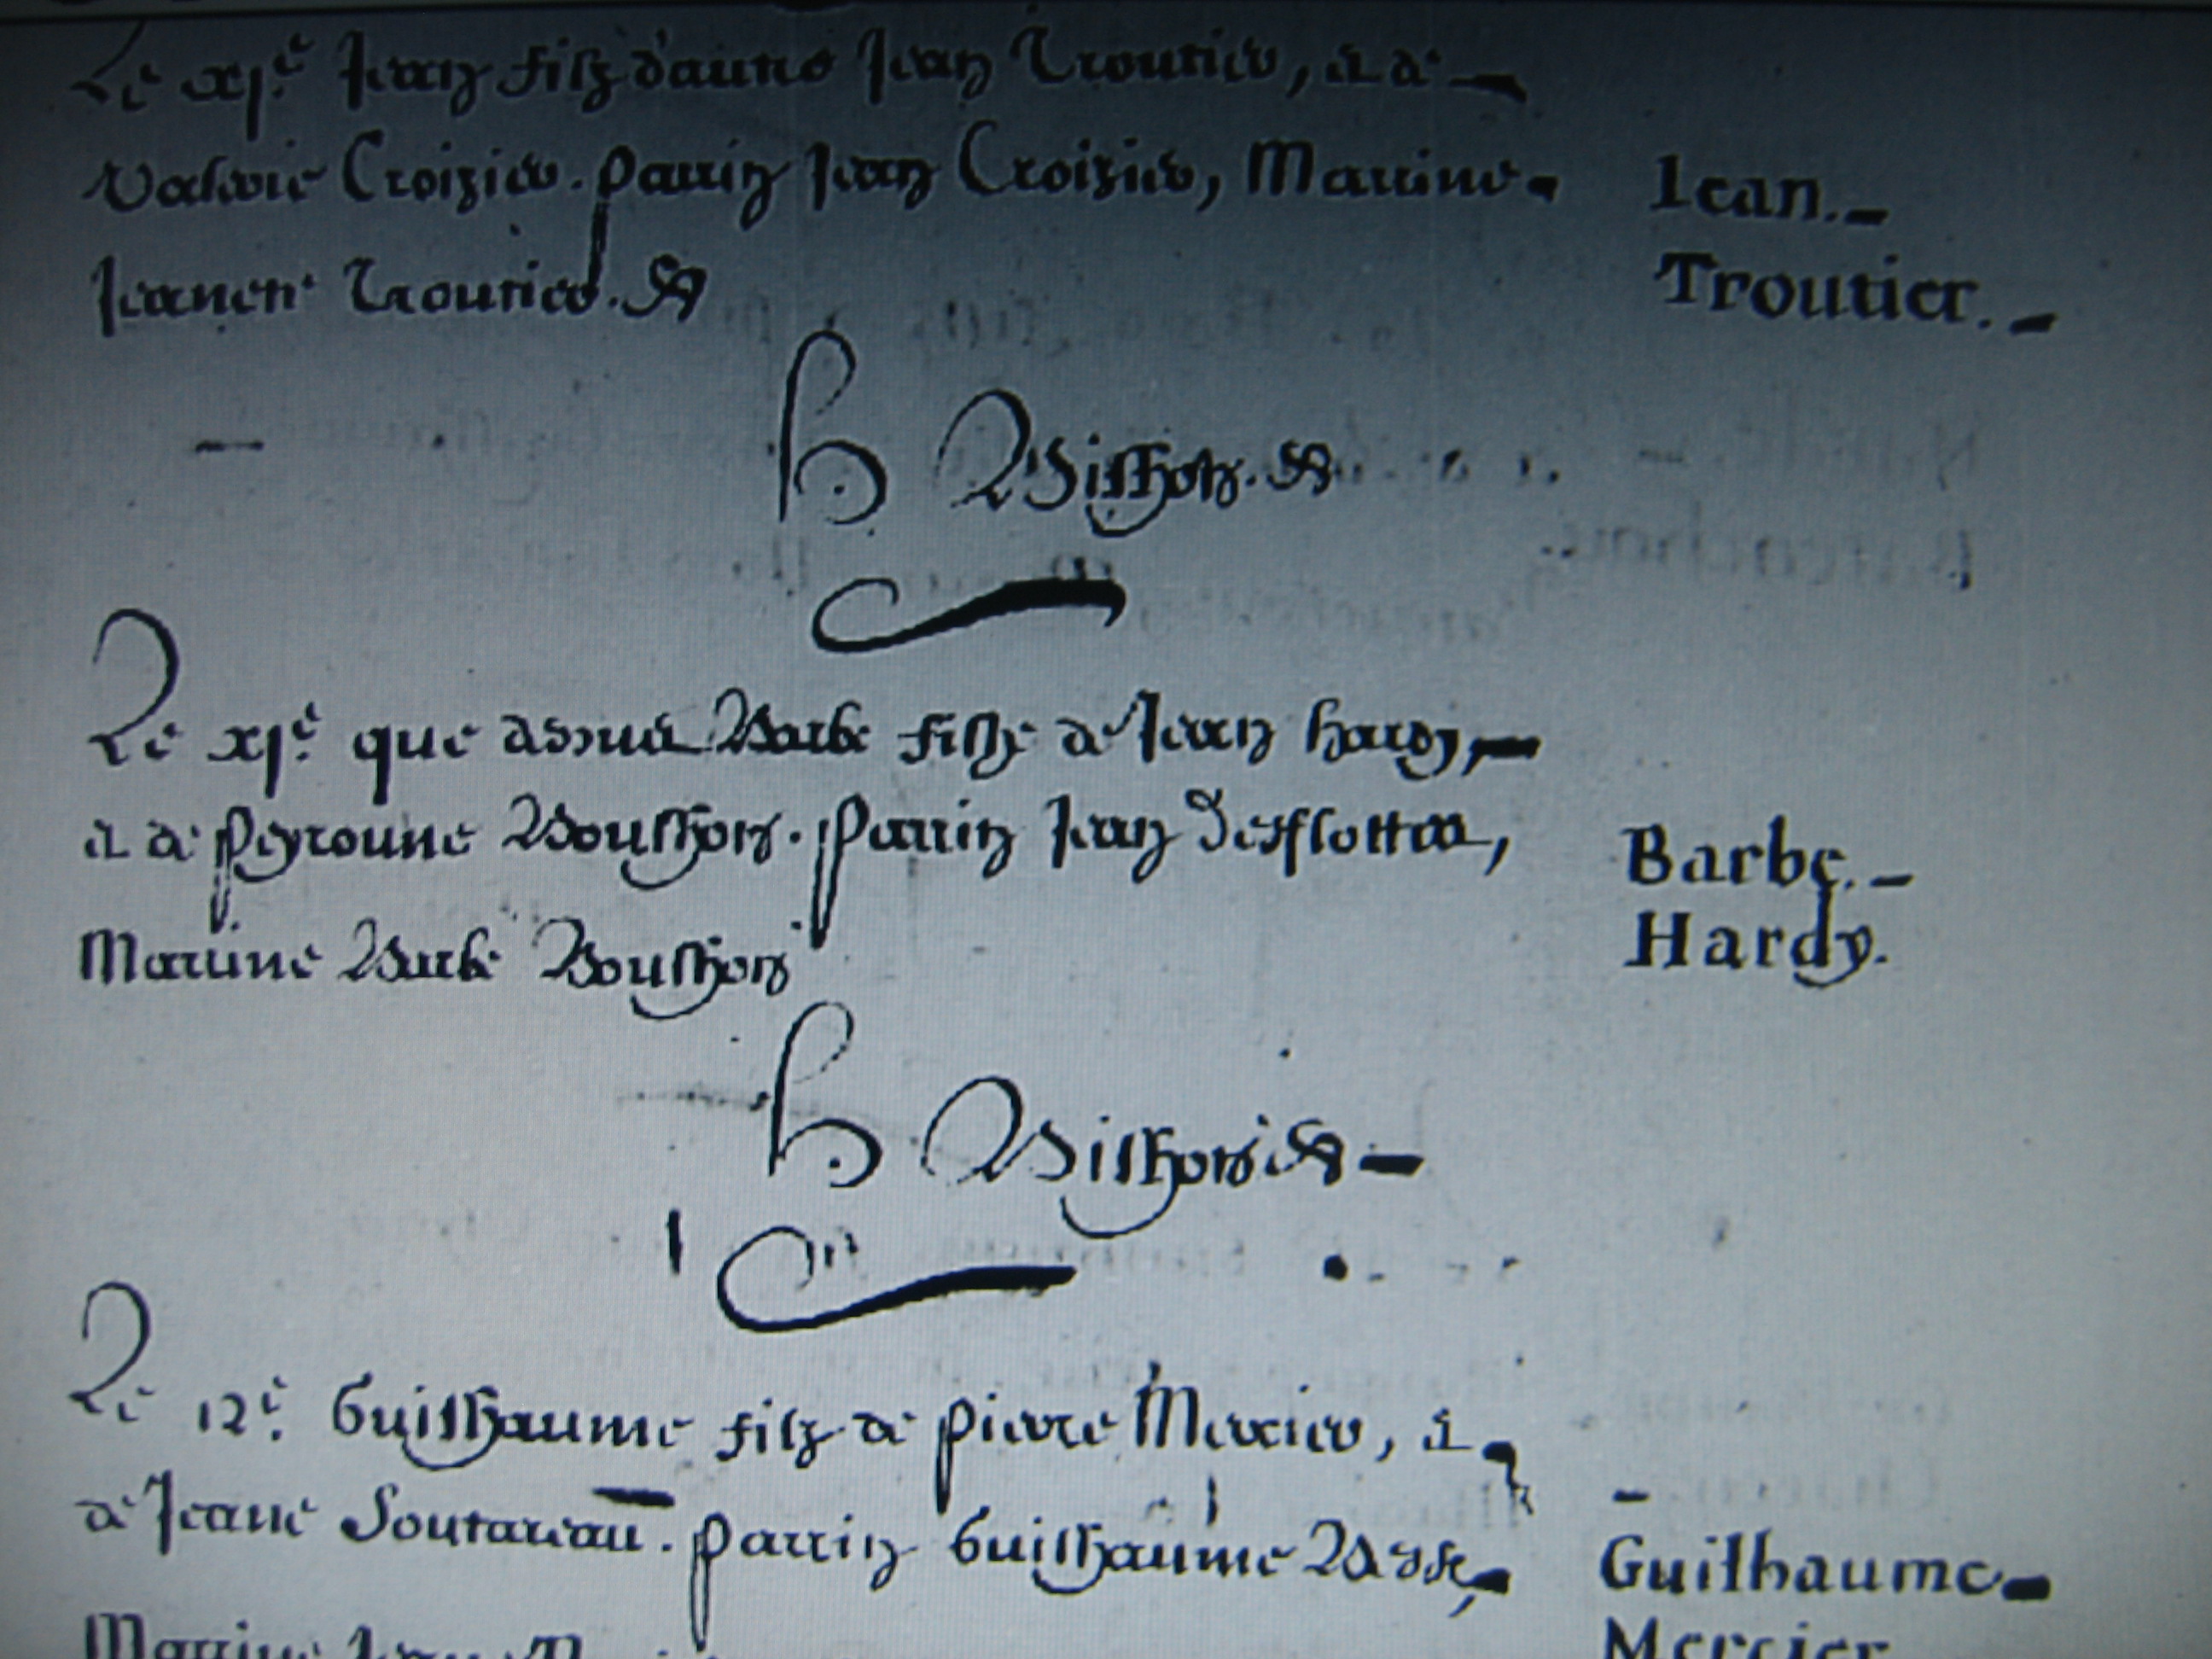 Le xj.e Jean filz d'autre Jean Troutier, et de
Valerie Croizier. parrin Jean Croizier, Marrine
Jeanette Troutier.
Jean.
Troutier.
h Bilhon.
Le xj.e que dessus Barbe filhe de Jean hardy,
et de peyroune Boulhon. parrin Jean Desflottes,
Marrine Barbe Boulhon
Barbe.
Hardy.
h Bilhon
Le 12.e Guilhaume filz de pierre Mercier, et
de Jeane Soutareau. parrin Guilhaume
Guilhaume
Marrine
Mercier